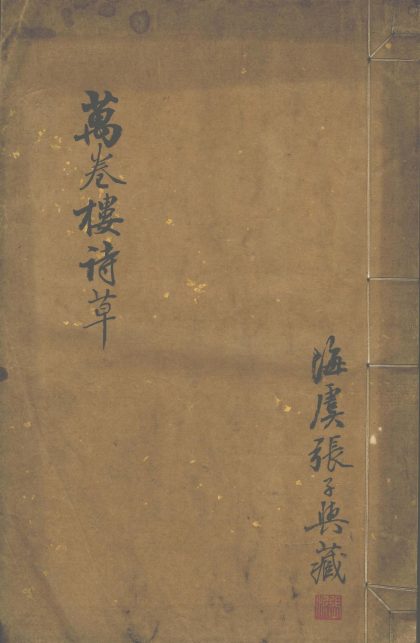 萬卷樓诗草
海虞張子與藏